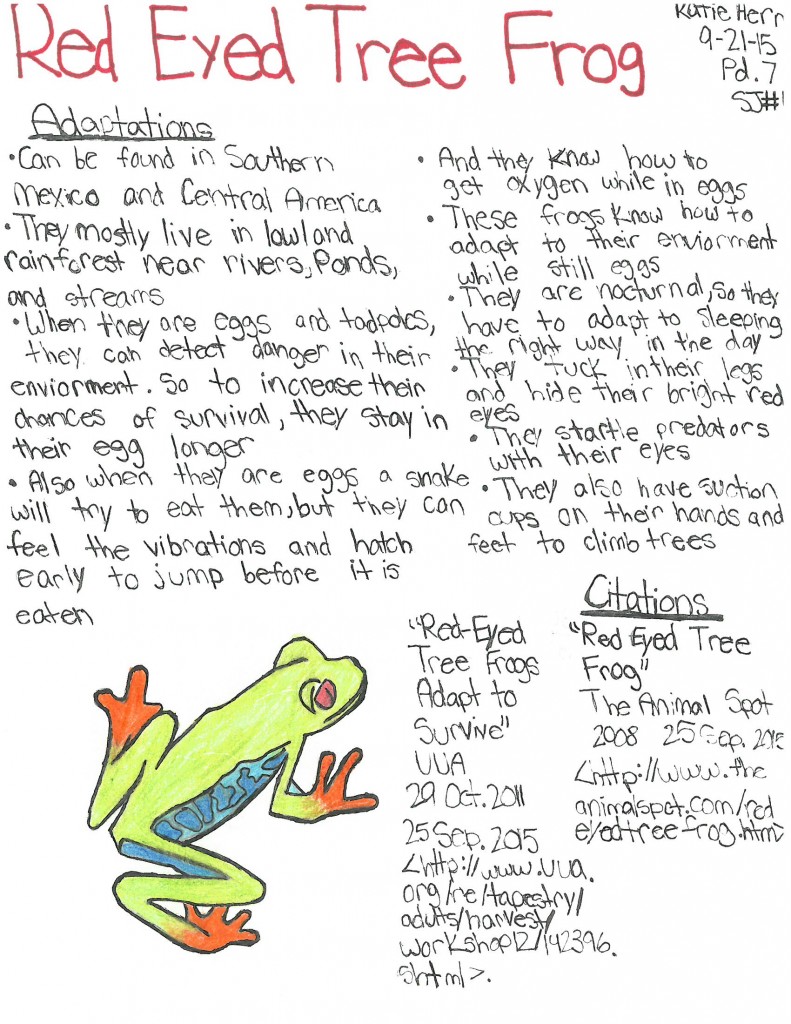 Red Eyed Tree Frog
Katie Herr
9-21-15
Pd. 7
SJ#1
Adaptations
•Can be found in Southern
Mexico and Central America
•They mostly live in lowland
rainforest near rivers, Ponds,
and streams
•When they are eggs and tadpoles,
they can detect danger in their
enviorment. So to increase their
chances of survival, they stay in
their egg longer
• Also when they are eggs a snake
will try to eat them, but they can
feel the vibrations and hatch
early to jump before it is
eaten
• And they know how to
get oxygen while in eggs
• These frogs know how to
adapt to their enviorment
while still eggs
• They are nocturnal, so they
have to adapt to sleeping
the right way in the day
• They tuck in their legs
and hide their bright red
eyes
• They startle predators
with their eyes
• They also have suction
cups on their hands and
feet to climb trees
Citations
"Red-Eyed
Tree Frogs
Adapt to
Survive"
UUA
29 Oct. 2011
25 Sep. 2015
<http://www.uua.
org/re/tapestry/
adults/harvest/
workshop12/142396.
shtml>.
"Red Eyed Tree
Frog"
The Animal Spot
2008 25 Sep. 2015
<http://www.the
animalspot.com/red
eyedtreefrog.htm>